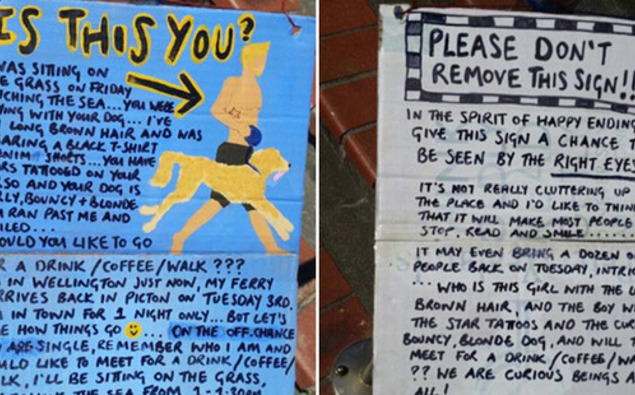 IS THIS YOU?
WAS SITTING ON
GRASS ON FRIDAY
THE SEA... YOU WERE
WITH YOUR DOG... I'VE
LONG BROWN HAIR AND WAS
A BLACK T-SHIRT
SHORTS... YOU HAVE
TATTOOED ON YOUR
AND YOUR DOG IS
BOUNCY + BLONDE
RAN PAST ME AND
YOU LIKE TO GO
A DRINK / COFFEE / WALK ???
IN WELLINGTON JUST NOW, MY FERRY
BACK IN PICTON ON TUESDAY 3RD.
IN TOWN FOR 1 NIGHT ONLY... BUT LET'S
HOW THINGS GO 🙂... ON THE OFF-CHANCE
ARE SINGLE, REMEMBER WHO I AM AND
LIKE TO MEET FOR A DRINK / COFFEE /
I'LL BE SITTING ON THE GRASS,
THE SEA FROM
PLEASE DON'T
REMOVE THIS SIGN!!
IN THE SPIRIT OF HAPPY
GIVE THIS SIGN A CHANCE
BE SEEN BY THE RIGHT
IT'S NOT REALLY CLUTTERING UP
THE PLACE AND I'D LIKE TO
THAT IT WILL MAKE MOST PEOPLE
STOP, READ AND SMILE......
IT MAY EVEN BRING A DOZEN
PEOPLE BACK ON TUESDAY,
... WHO IS THIS GIRL WITH THE
BROWN HAIR, AND THE BOY
THE STAR TATTOOS AND THE
BOUNCY, BLONDE DOG, AND WILL
MEET FOR A DRINK / COFFEE /
?? WE ARE CURIOUS BEINGS
ALL!